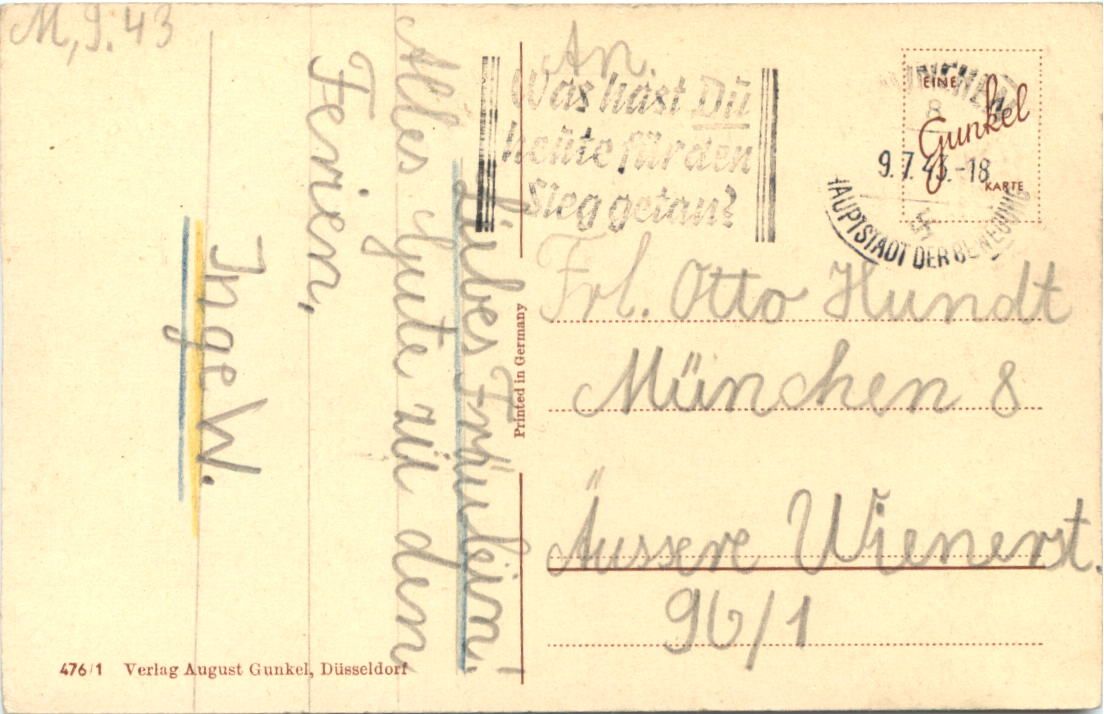 M, 9. 43
Liebes Fräulein!
Alles Gute zu den
Ferien,
Inge W.
476/1 Verlag August Gunkel, Düsseldorf
Printed in Germany
Was hast Du
heute für den
Sieg getan?
MÜNCHEN
8
9.7.43.-18
HAUPTSTADT DER BEWEGUNG
EINE
Gunkel
KARTE
An.
Frl. Otto Hundt
München 8
Äussere Wienerst.
96/1